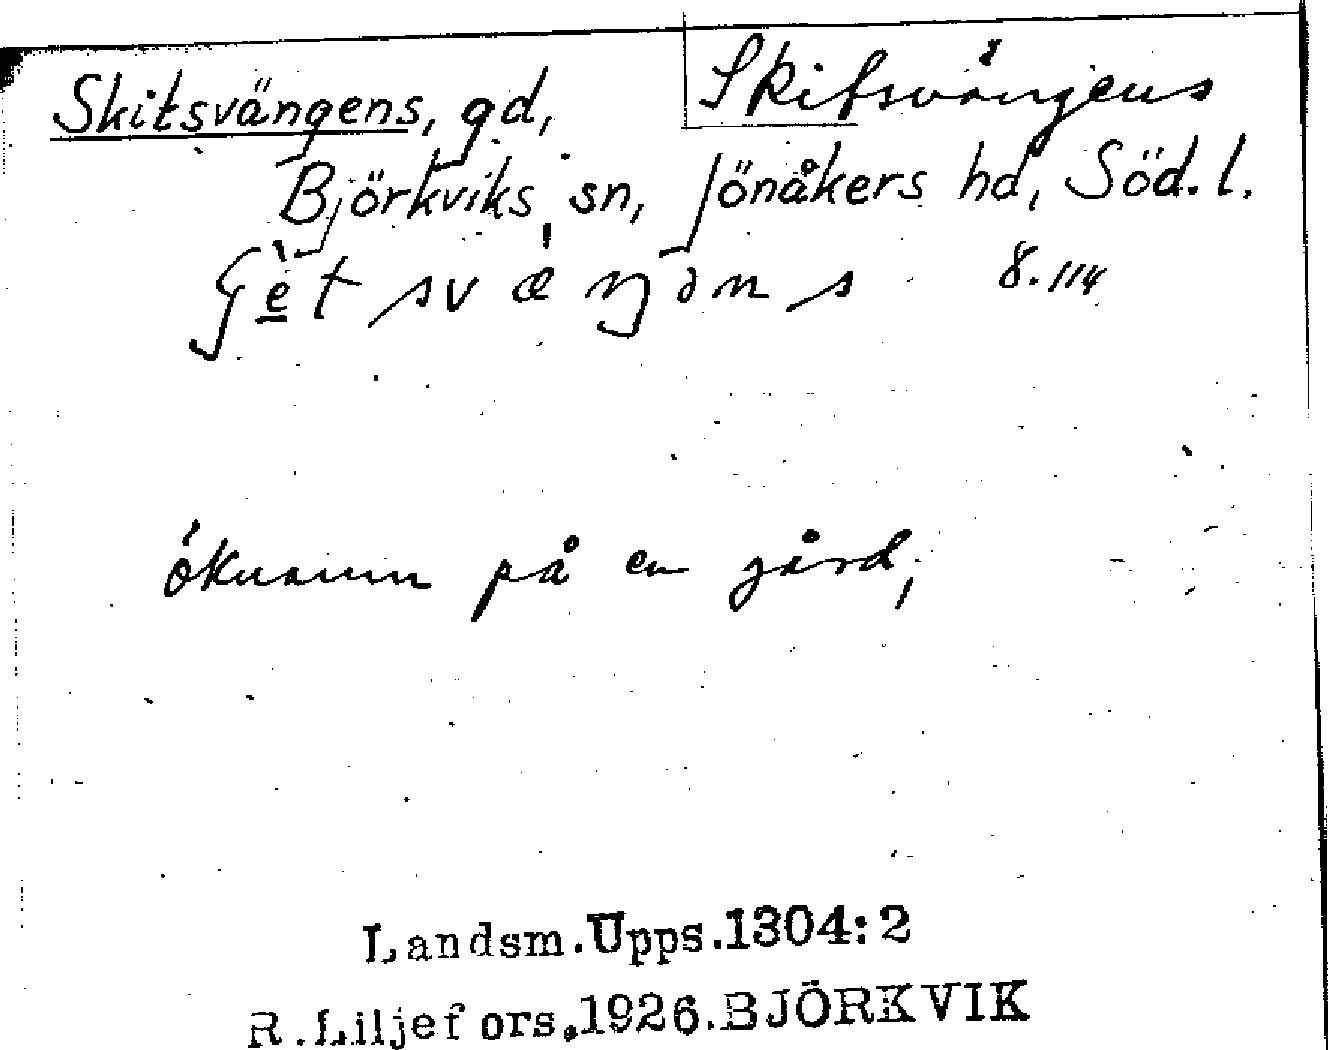 Skitsvängens, gd, Skitsvängens
Björkviks sn, Jönåkers hd, Söd. l.
8.114
öknamn på en gård,
Landsm.Upps.1304:2
R.Liljefors.1926.BJÖRKVIK